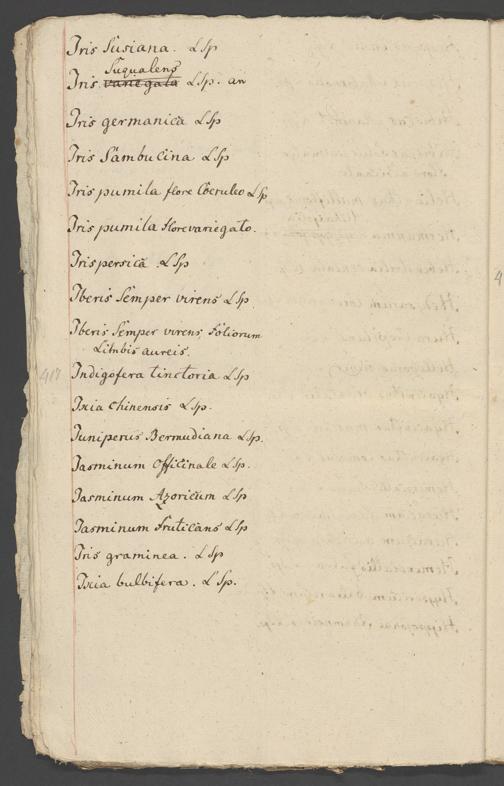 Iris Susiana. L Sp
Squalens
Iris variegata L Sp. an
Iris germanica L Sp
Iris Sambucina L Sp
Iris pumila flore Coeruleo L Sp
Iris pumila flore variegato.
Iris persica L Sp
Iberis Semper virens L Sp
Iberis Semper virens, Foliorum
Limbis aureis.
417 Indigofera tinctoria L Sp
Ixia Chinensis L Sp.
Juniperus Bermudiana L Sp.
Jasminum Officinale L Sp.
Jasminum Azoricum L Sp
Jasminum fruticans L Sp
Iris graminea. L Sp
Ixia bulbifera. L Sp.
4